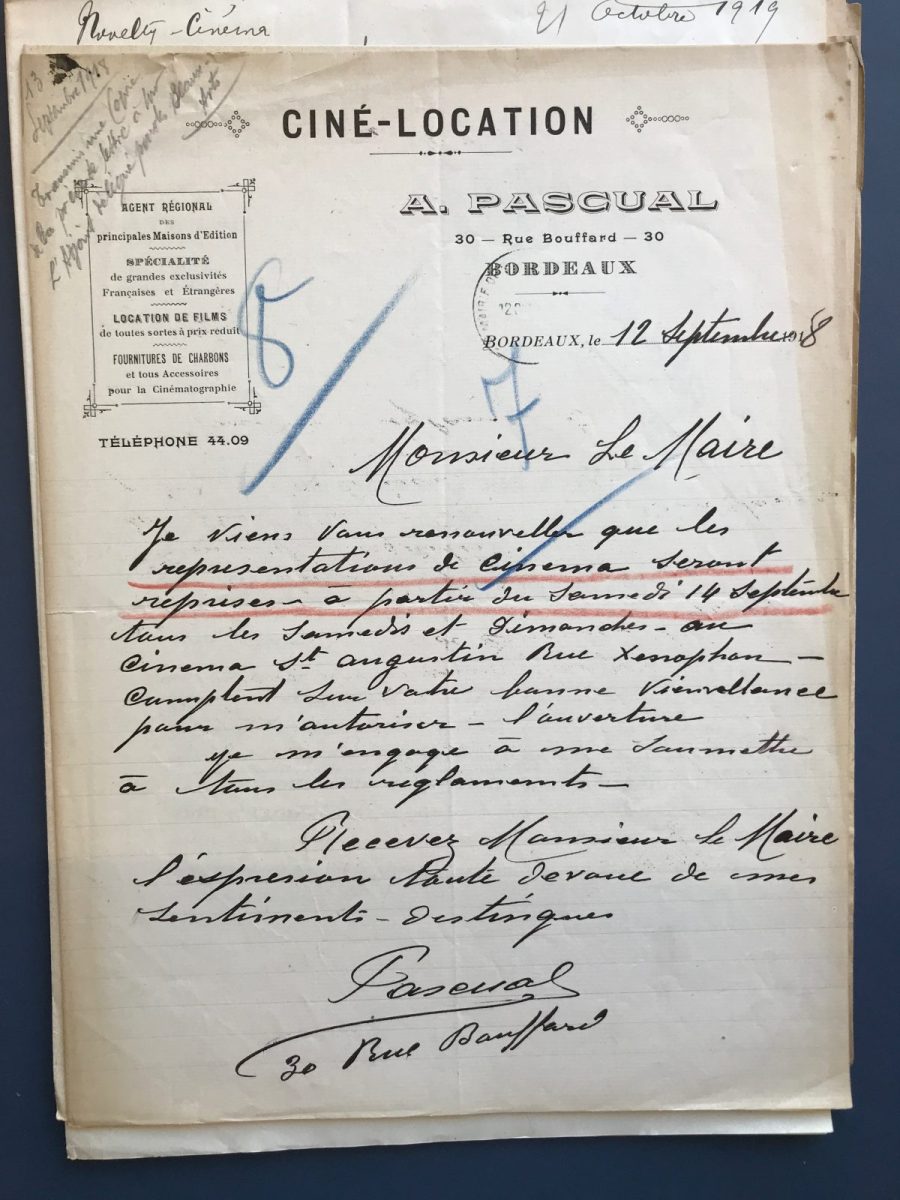 Novelty - Cinéma
21 Octobre 1919
13
Septembre 1918
Transmis une Copie
de la présente lettre à Mr
L'Adjoint délégué pour les Beaux-
Arts
CINÉ-LOCATION
AGENT RÉGIONAL
DES
principales Maisons d'Edition
SPÉCIALITÉ
de grandes exclusivités
Françaises et Étrangères
LOCATION DE FILMS
de toutes sortes à prix réduit
FOURNITURES DE CHARBONS
et tous Accessoires
pour la Cinématographie
TÉLÉPHONE 44.09
A. PASCUAL
30 — Rue Bouffard — 30
BORDEAUX
MAIRIE DE
BORDEAUX, le 12 Septembre 1918
8
7
Monsieur Le Maire
Je viens vous renouveller que les
representations de Cinema seront
reprises - à partir du Samedi 14 Septembre
tous les Samedis et Dimanches - au
Cinema St augustin Rue Xenophon -
Comptent sur votre bonne vienvellance
pour m'autoriser - l'ouverture
Je m'engage à me soumettre
à tous les reglaments -
Recevez Monsieur le Maire
l'éspresion toute devoue de mes
sentiments - distingues
Pascual
30 Rue Bouffard